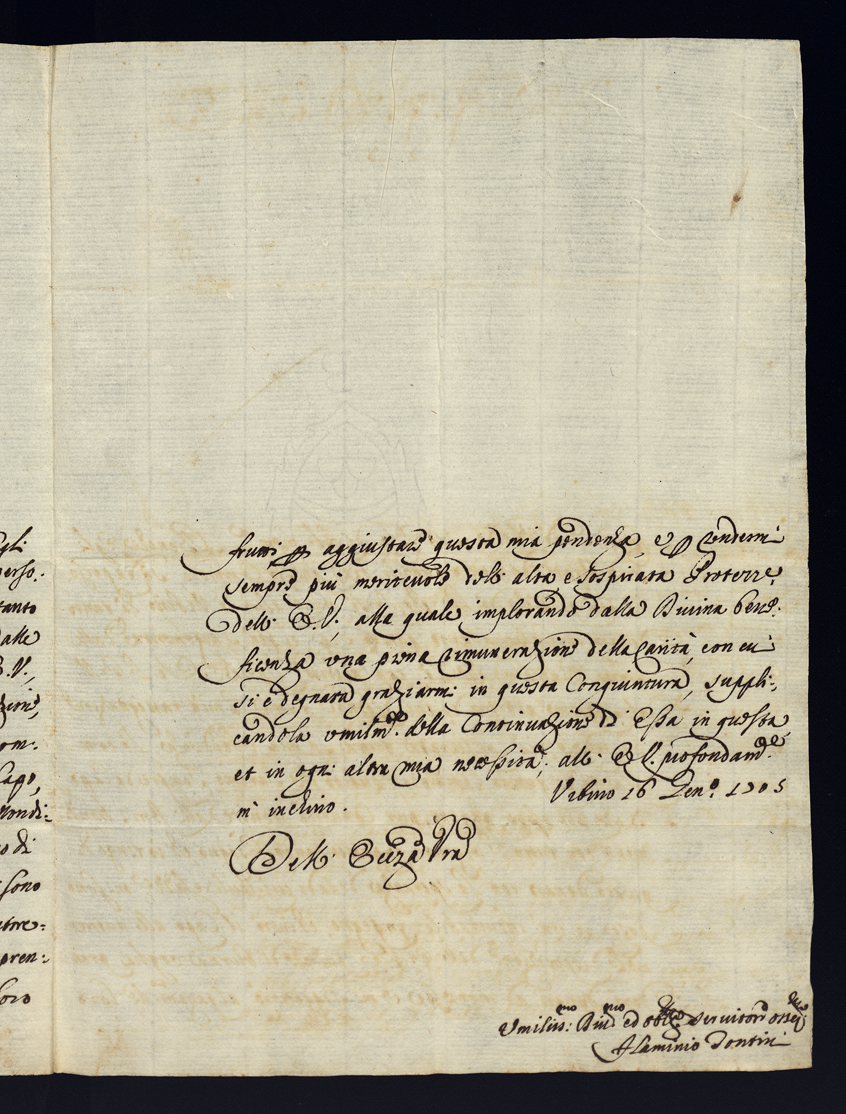 gli
perso:
tanto
alle
S.V.,
zione,
om:
Capo,
mondi:
o di
sono
pren:
loro
frutti p aggiustare questa mia pendenza, e p rendermi
sempre più meritevole dell' alta e sospirata Protezze
dell' E.V., alla quale implorando dalla Divina bene:
ficenza una piena rimunerazione della carità, con cui
si è degnata graziarmi in questa Congiuntura, suppli:
candola umilmte. della Continuazione di Essa in questa,
et in ogni altra mia necessità, all' E.V. profondamte
m' inchino.
Urbino 16 Gen.o 1705
Dell' Eccza Vra
Umiliss:mo Div.mo ed obl.mo servitore osseq.mo
Flaminio Dontini